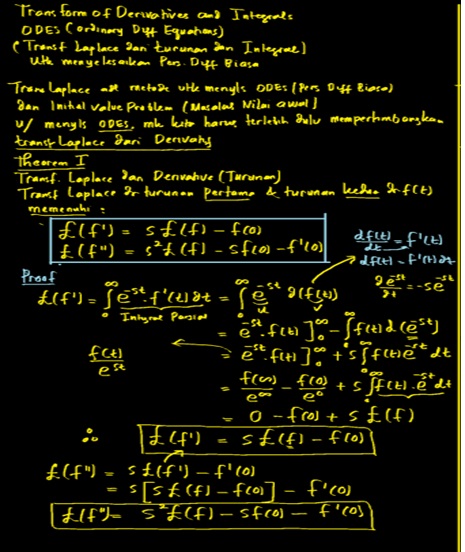 Transform of Derivatives and Integrals
ODEs (Ordinary Diff Equations)
(Transf Laplace dan turunan dan Integral)
Utk menyelesaikan Pers. Diff Biasa
Trans Laplace adl metode utk menyls ODEs (Pers Diff Biasa)
dan Initial Value Problem (Masalah Nilai awal)
u/ menyls ODEs, mk kita harus terlebih dulu mempertimbangkan
transf Laplace dari Derivatif
Theorem I
Transf. Laplace dan Derivative (Turunan)
Transf Laplace dr turunan pertama & turunan kedua dr f(t)
memenuhi :
£(f') = s£(f) - f(0)
£(f'') = s²£(f) - sf(0) - f'(0)
df(t)/dt = f'(t)
df(t) = f'(t) dt
Proof
de^-st/dt = -se^-st
£(f') = ∫₀^∞ e^-st · f'(t) dt = ∫₀^∞ e^-st d(f(t))
u v
Integral Parsial
= e^-st · f(t) ]₀^∞ - ∫₀^∞ f(t) d(e^-st)
f(t)/e^st
= e^-st · f(t) ]₀^∞ + s∫₀^∞ f(t) e^-st dt
= f(∞)/e^∞ - f(0)/e^0 + s∫₀^∞ f(t) · e^-st dt
= 0 - f(0) + s £(f)
∴ £(f') = s£(f) - f(0)
£(f'') = s£(f') - f'(0)
= s[s£(f) - f(0)] - f'(0)
£(f'') = s²£(f) - sf(0) - f'(0)